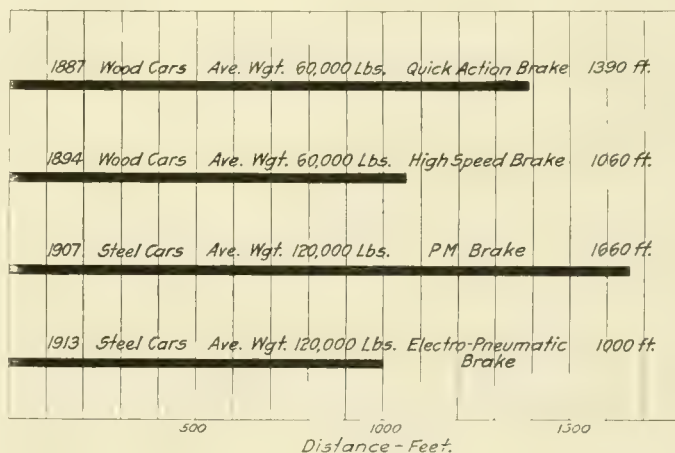 1887 Wood Cars Ave. Wgt. 60,000 Lbs. Quick Action Brake 1390 ft.
1894 Wood Cars Ave. Wgt. 60,000 Lbs. High Speed Brake 1060 ft.
1907 Steel Cars Ave. Wgt. 120,000 Lbs. PM Brake 1660 ft.
1913 Steel Cars Ave. Wgt. 120,000 Lbs. Electro-Pneumatic 1000 ft.
Brake
500 1000 1500
Distance-Feet.